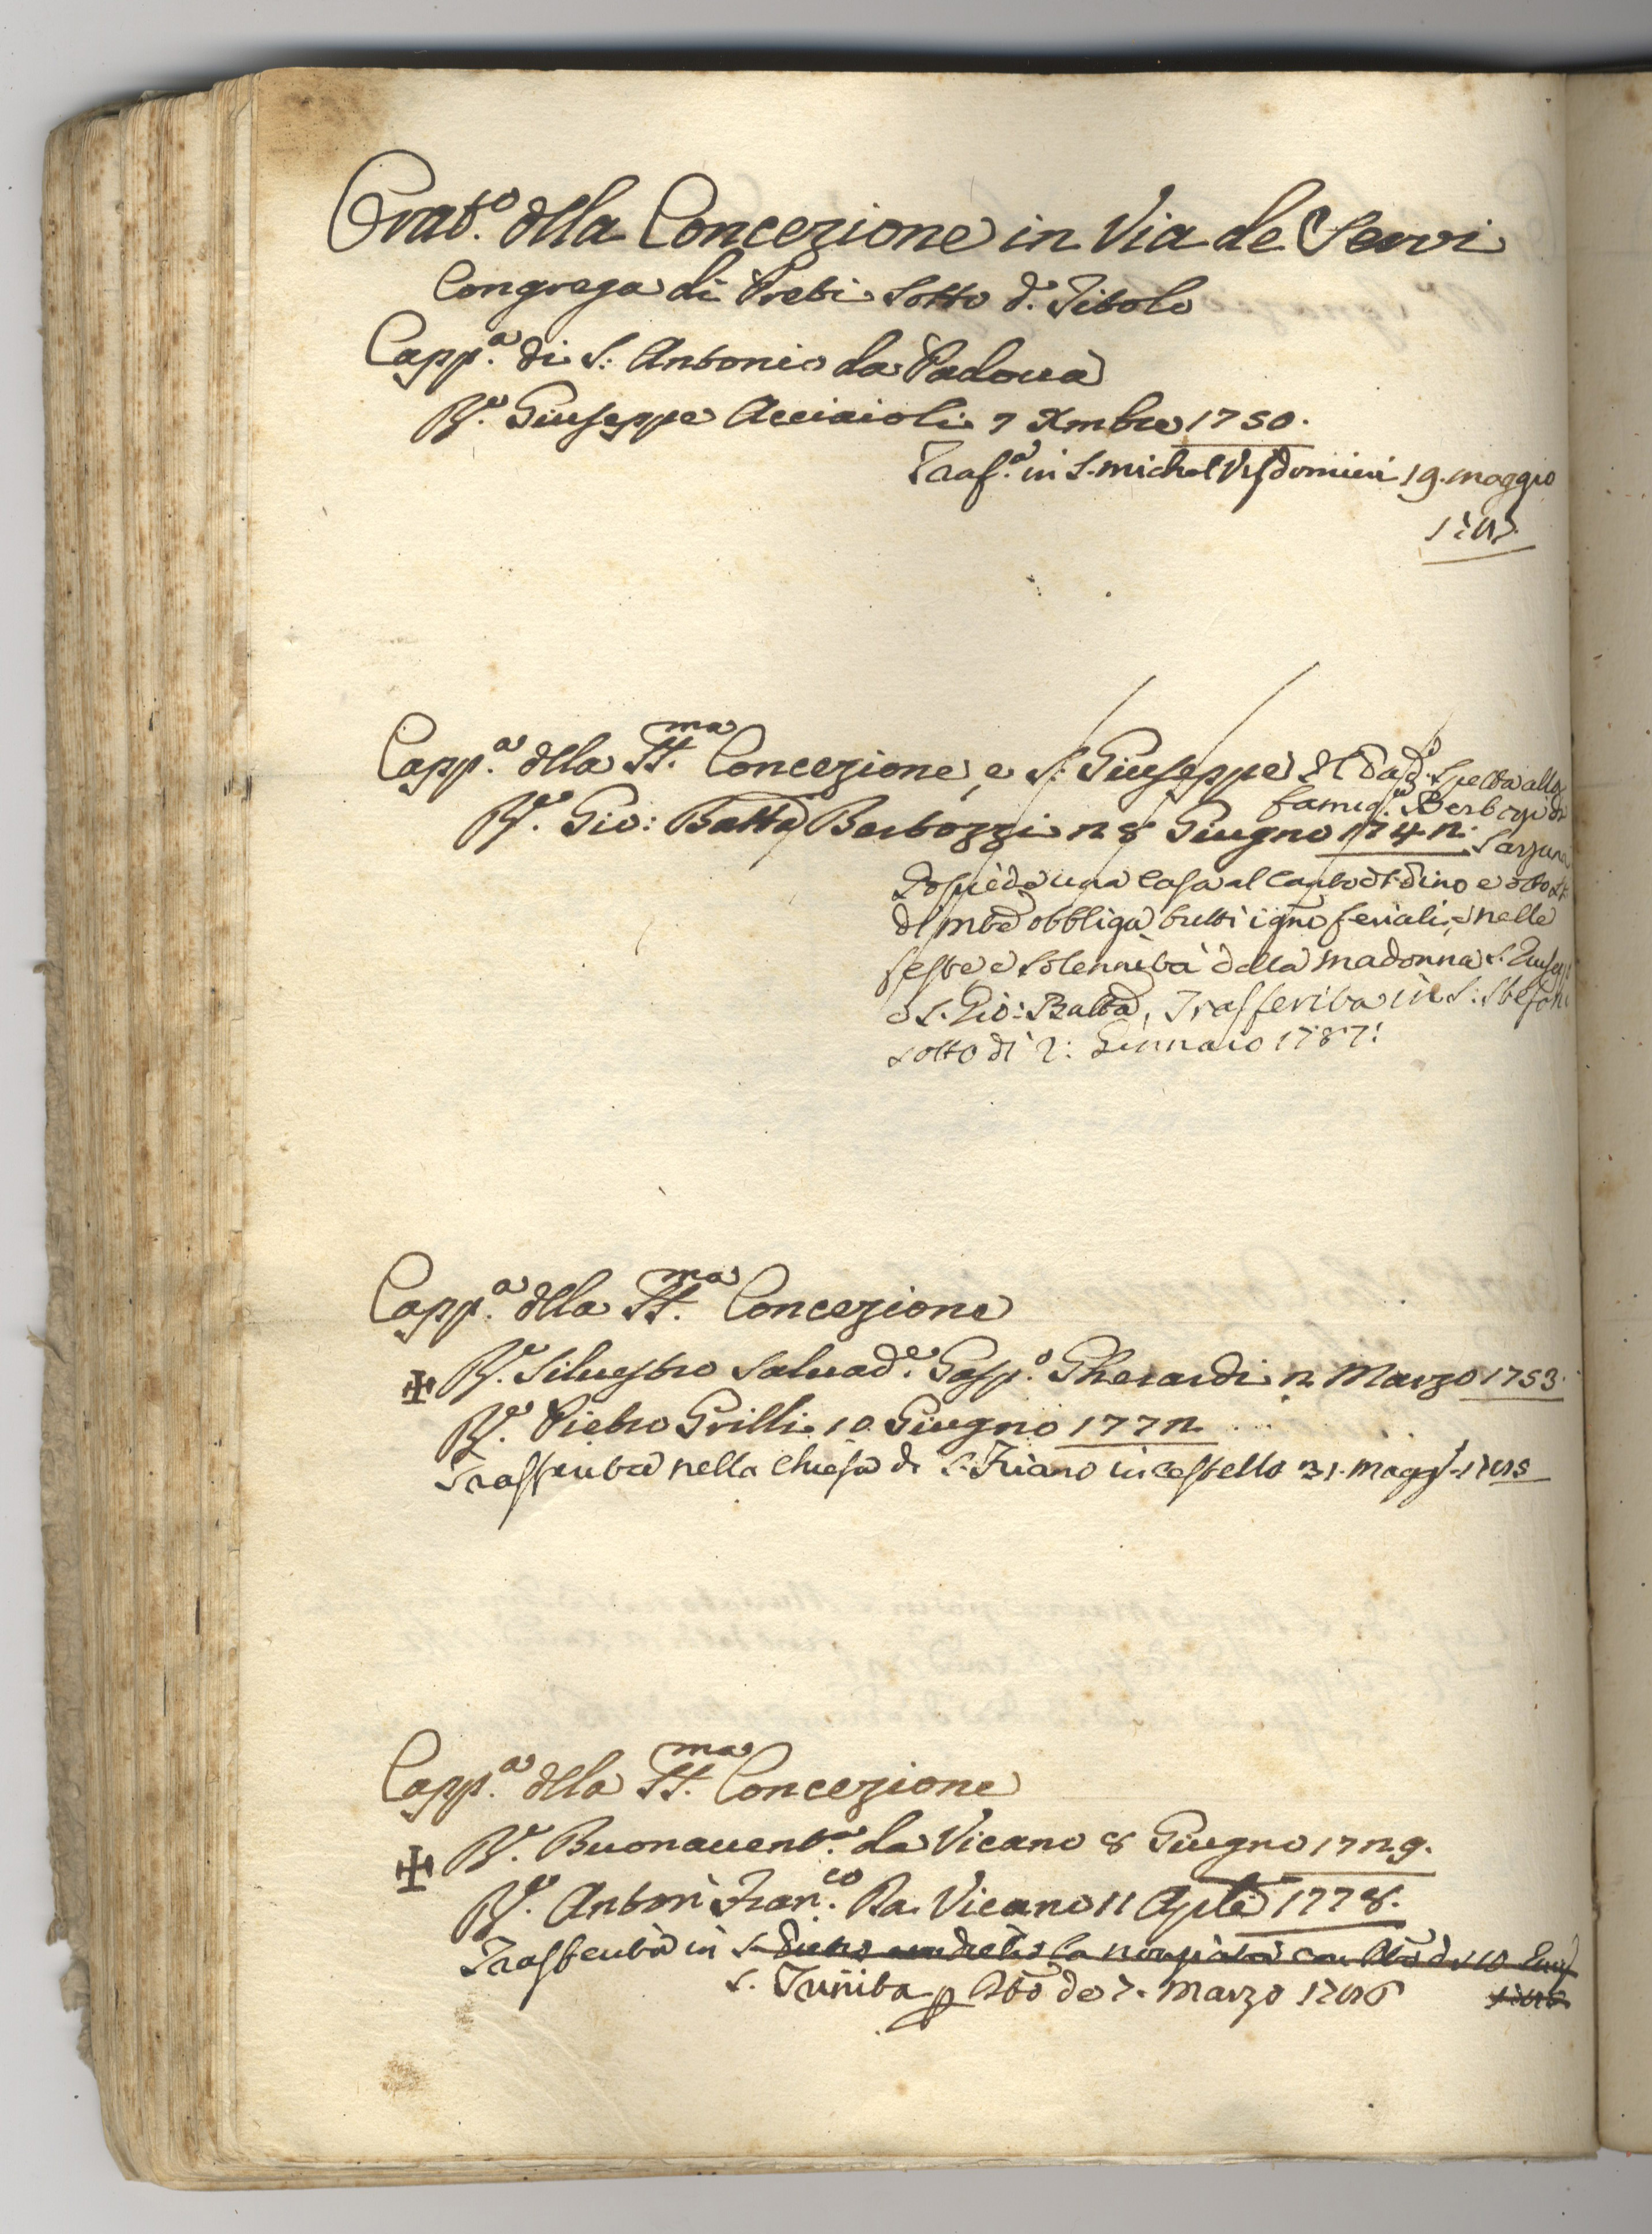 Orat.o della Concezione in Via de Servi
Congrega di Preti sotto d.o Titolo
Capp.a di S: Antonio da Padoua
R.e Giuseppe Acciaioli 7 Xmbre 1750.
Trasf.a in S. Michel Visdomini 19. maggio
1785.
Capp.a della SS.ma Concezione, e S: Giuseppe Spetta alla
famig.a Berbozzi di
R.e Gio: Batta Berbozzi 28 Giugno 1742. Sarzana
Possiede una Casa al Canto
obbliga tutti i gno feriali, e nelle
feste e solennità della Madonna S. Giuseppe
e S. Gio: Batta, Trasferita in S: Stefano
sotto dì 2: Gennaio 1787:
Capp.a della SS.ma Concezione
R.e Siluestro Saluad.e Gasp.o Gherardi 2 Marzo 1753.
R.e Pietro Grilli 10 Giugno 1772
Trasferita nella Chiesa di S. Friano in Castello 31. Magg.o 1785
Capp.a della SS.ma Concezione
R.e Buonauent.a da Vicano 8 Giugno 1729.
R.e Anton Fran.co Da Vicano 11 Aple 1778.
Trasferita in S.
S. Trinita p Atto de 7. Marzo 1786